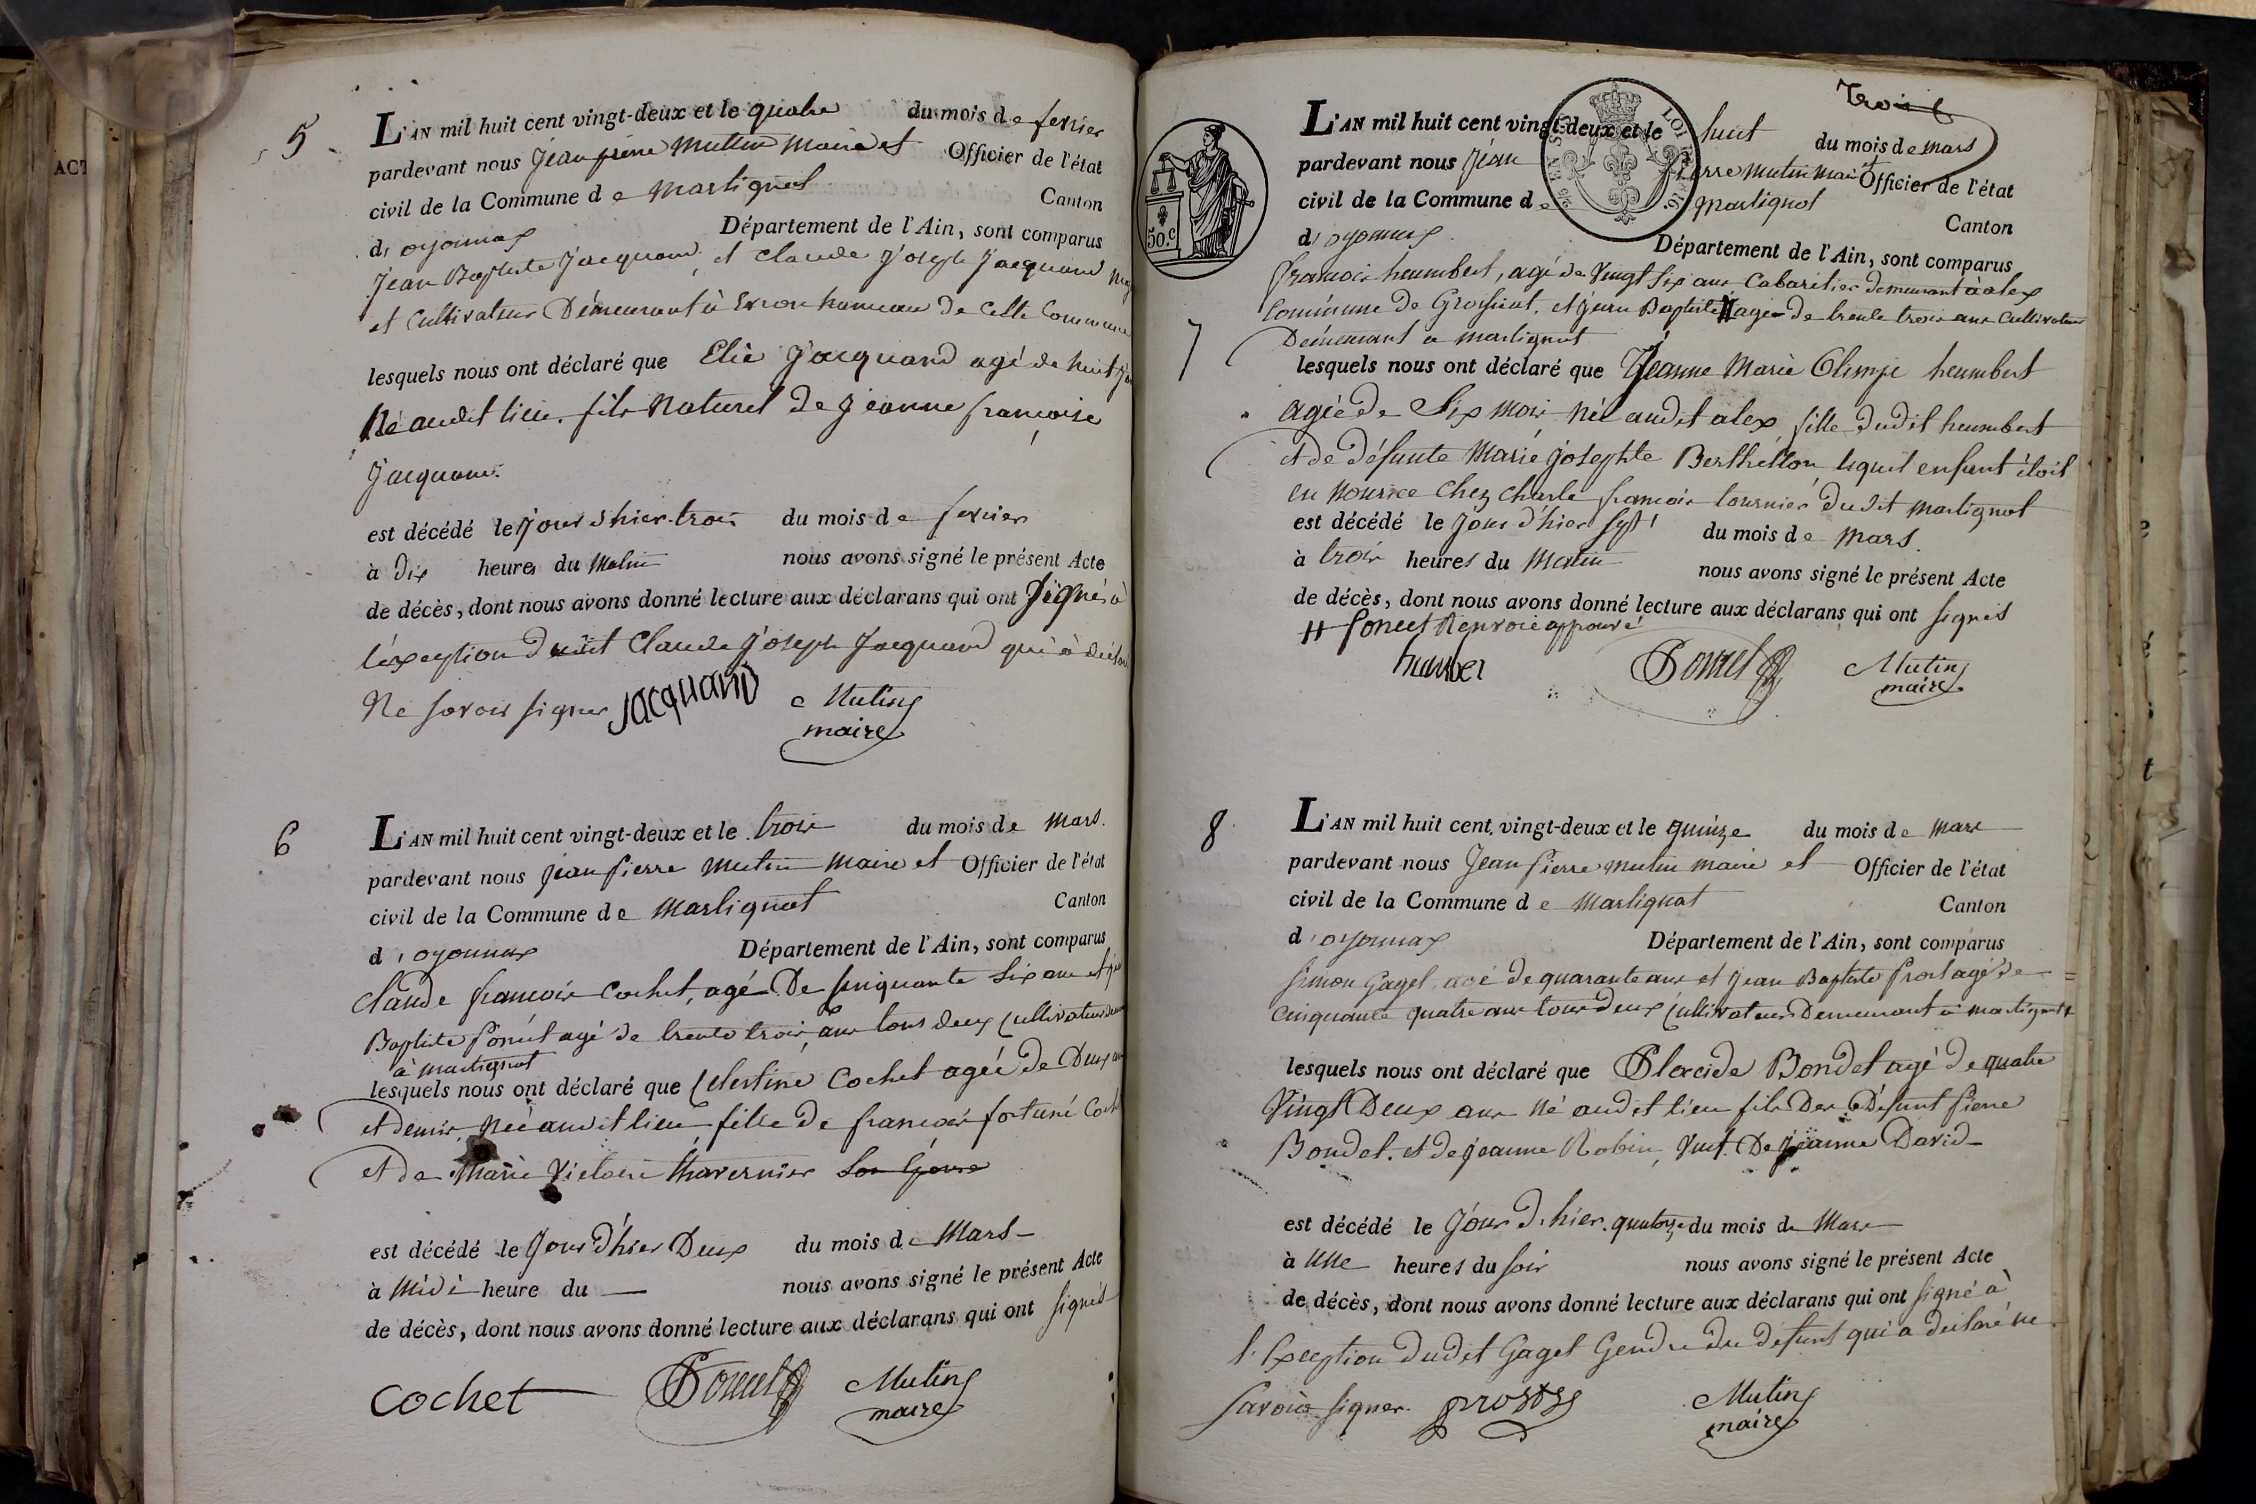 ACT
5
L'AN mil huit cent vingt-deux et le quatre du mois de fevrier
pardevant nous Jean pierre Mutin Maire et Officier de l'état
civil de la Commune de Martignat Canton
d'oyonnax Département de l'Ain, sont comparus
Jean Baptiste Jacquand, et Claude Joseph Jacquand
et Cultivateur Demeurant à Evron hameau de Cette Commune
lesquels nous ont déclaré que Elie Jacquand agé de huit
Né audit lieu. fils Naturel de Jeanne françoise
Jacquand.
est décédé le jour d'hier trois du mois de fevrier
à dix heures du Matin nous avons signé le présent Acte
de décès, dont nous avons donné lecture aux déclarans qui ont Signés à
l'éxception dudit Claude Joseph Jacquand qui à déclaré
Ne savoir signer JACQUAND Mutin
maire
6
L'AN mil huit cent vingt-deux et le trois du mois de Mars.
pardevant nous Jean pierre Mutin Maire et Officier de l'état
civil de la Commune de Martignat Canton
d'oyonnax Département de l'Ain, sont comparus
Claude françois Cochet, agé De sinquante Six ans et Jean
Baptiste Poncet agé de trente trois, ans tous deux Cultivateurs
à Martignat
lesquels nous ont déclaré que Celestine Cochet agée de Deux ans
et demis, Née audit lieu fille de françois fortuné Cochet
et de Marie Victoire thavernier
est décédé le Jour d'hier Deux du mois de Mars
à Midi heure du — nous avons signé le présent Acte
de décès, dont nous avons donné lecture aux déclarans qui ont signés
Cochet Poncet Mutin
maire
trois
L'AN mil huit cent vingt-deux et le huit du mois de Mars
pardevant nous Jean pierre Mutin Maire et Officier de l'état
civil de la Commune de Martignat Canton
d'oyonnax Département de l'Ain, sont comparus
50.c
françois heumbert, agé de Vingt Six ans Cabaretier demeurant à alex
Commune de Groissiat. et Jean Baptiste H agé de trente trois ans Cultivateur
7
Demeurant a Martignat
lesquels nous ont déclaré que Jeanne Marie Olimpe heumbert
agée de Six mois Née audit alex fille dudit heumbert
et de défunte Marie Josephte Berthellon lequel enfant étoit
en Nourrice Chez Charle françois tournier dudit Martignat
est décédé le Jour d'hier Sept du mois de Mars.
à trois heures du Matin nous avons signé le présent Acte
de décès, dont nous avons donné lecture aux déclarans qui ont signés
H Poncet Renvoie approuvé
humber Poncet Mutin
maire
8
L'AN mil huit cent vingt-deux et le quinze du mois de Mars
pardevant nous Jean pierre Mutin Maire et Officier de l'état
civil de la Commune de Martignat Canton
d'oyonnax Département de l'Ain, sont comparus
Simon Gaget agé de quarante ans et Jean Baptiste Prost agé de
Cinquante quatre ans tous deux Cultivateurs Demeurant à Martignat
lesquels nous ont déclaré que Placide Bondet agé de quatre
Vingt Deux ans Né audit lieu fils Des Défunt Pierre
Bondet. et de Jeanne Robin, Veuf De Jeanne David
est décédé le Jour d'hier. quatorze du mois de Mars
à Une heures du Soir nous avons signé le présent Acte
de décès, dont nous avons donné lecture aux déclarans qui ont signé à
l'Exception dudit Gaget Gendre du défunt qui a declaré ne
Savoir signer. prost Mutin
maire